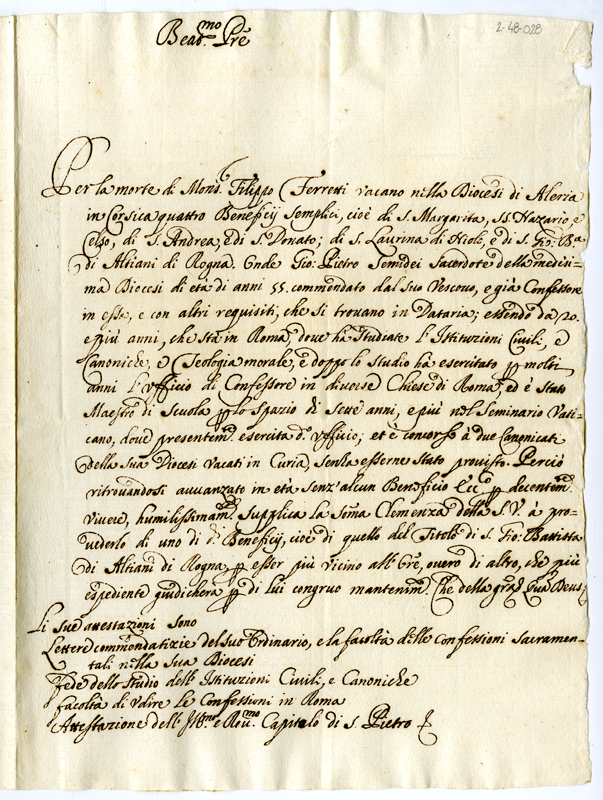 2-48-028
Beat.mo Pre
Per la morte di Mons.r Filippo Ferretti vacano nella Diocesi di Aleria
in Corsica quattro Beneficij semplici, cioè di S. Margarita, SS. Nazario, e
Celso, di S. Andrea, e di S. Donato; di S. Laurina di Niolo, e di S. Gio: Ba=
di Altiani di Rogna. Onde Gio: Pietro Semidei Sacerdote della medesi=
ma Diocesi di età di anni 55. commendato dal Suo Vescouo, e già Confessore
in essa, e con altri requisiti, che si trouano in Dataria; essendo da 20.
e più anni, che stà in Roma, doue hà studiate l'Istituzioni Ciuili, e
Canoniche, e Teologia morale, e doppo lo studio hà esercitato p molti
anni l'Vfficio di Confessore in diuerse Chiese di Roma, ed è stato
Maestro di Scuola p lo spazio di sette anni, e più nel Seminario Vati=
cano, doue presentem.e esercita d.o Vfficio; et è concorso à due Canonicati
della Sua Diocesi vacati in Curia, senza esserne stato prouisto. Perciò
ritrouandosi auuanzato in età senz'alcun Beneficio Ecc.o p decentem.e
viuere, humilissimam.e supplica la Somma Clemenza della S. V. à pro=
uederlo di uno di d.i Beneficij, cioè di quello del Titolo di S. Gio: Battista
di Altiani di Rogna, p esser più vicino all' Ore, ouero di altro, che più
espediente giudicherà p di lui congruo mantenim.o Che della gra Qua Deus;
Li Sue attestazioni sono
Lettere commendatizie del suo Ordinario, e la facoltà delle Confessioni Sacramen=
tali nella Sua Diocesi
Fede dello studio dell' Istituzioni Ciuili, e Canoniche
Facoltà di Vdire le Confessioni in Roma
Attestazione dell' Ill.mo e Reu.mo Capitolo di S. Pietro